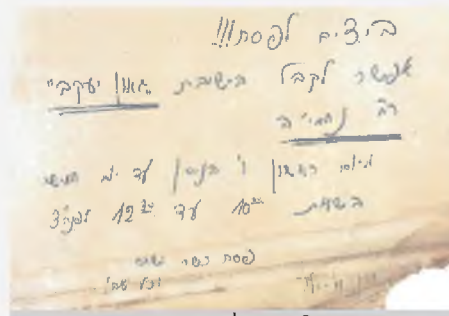 ביצים לפסח!!!
אפשר לקבל בישיבת "גאון יעקב"
רח' נחמי'ה
מיום ראשון ו' בניסן עד יום
בשעות 10³⁰ עד 12³⁰ לפנה"צ
פסח כשר ושמח